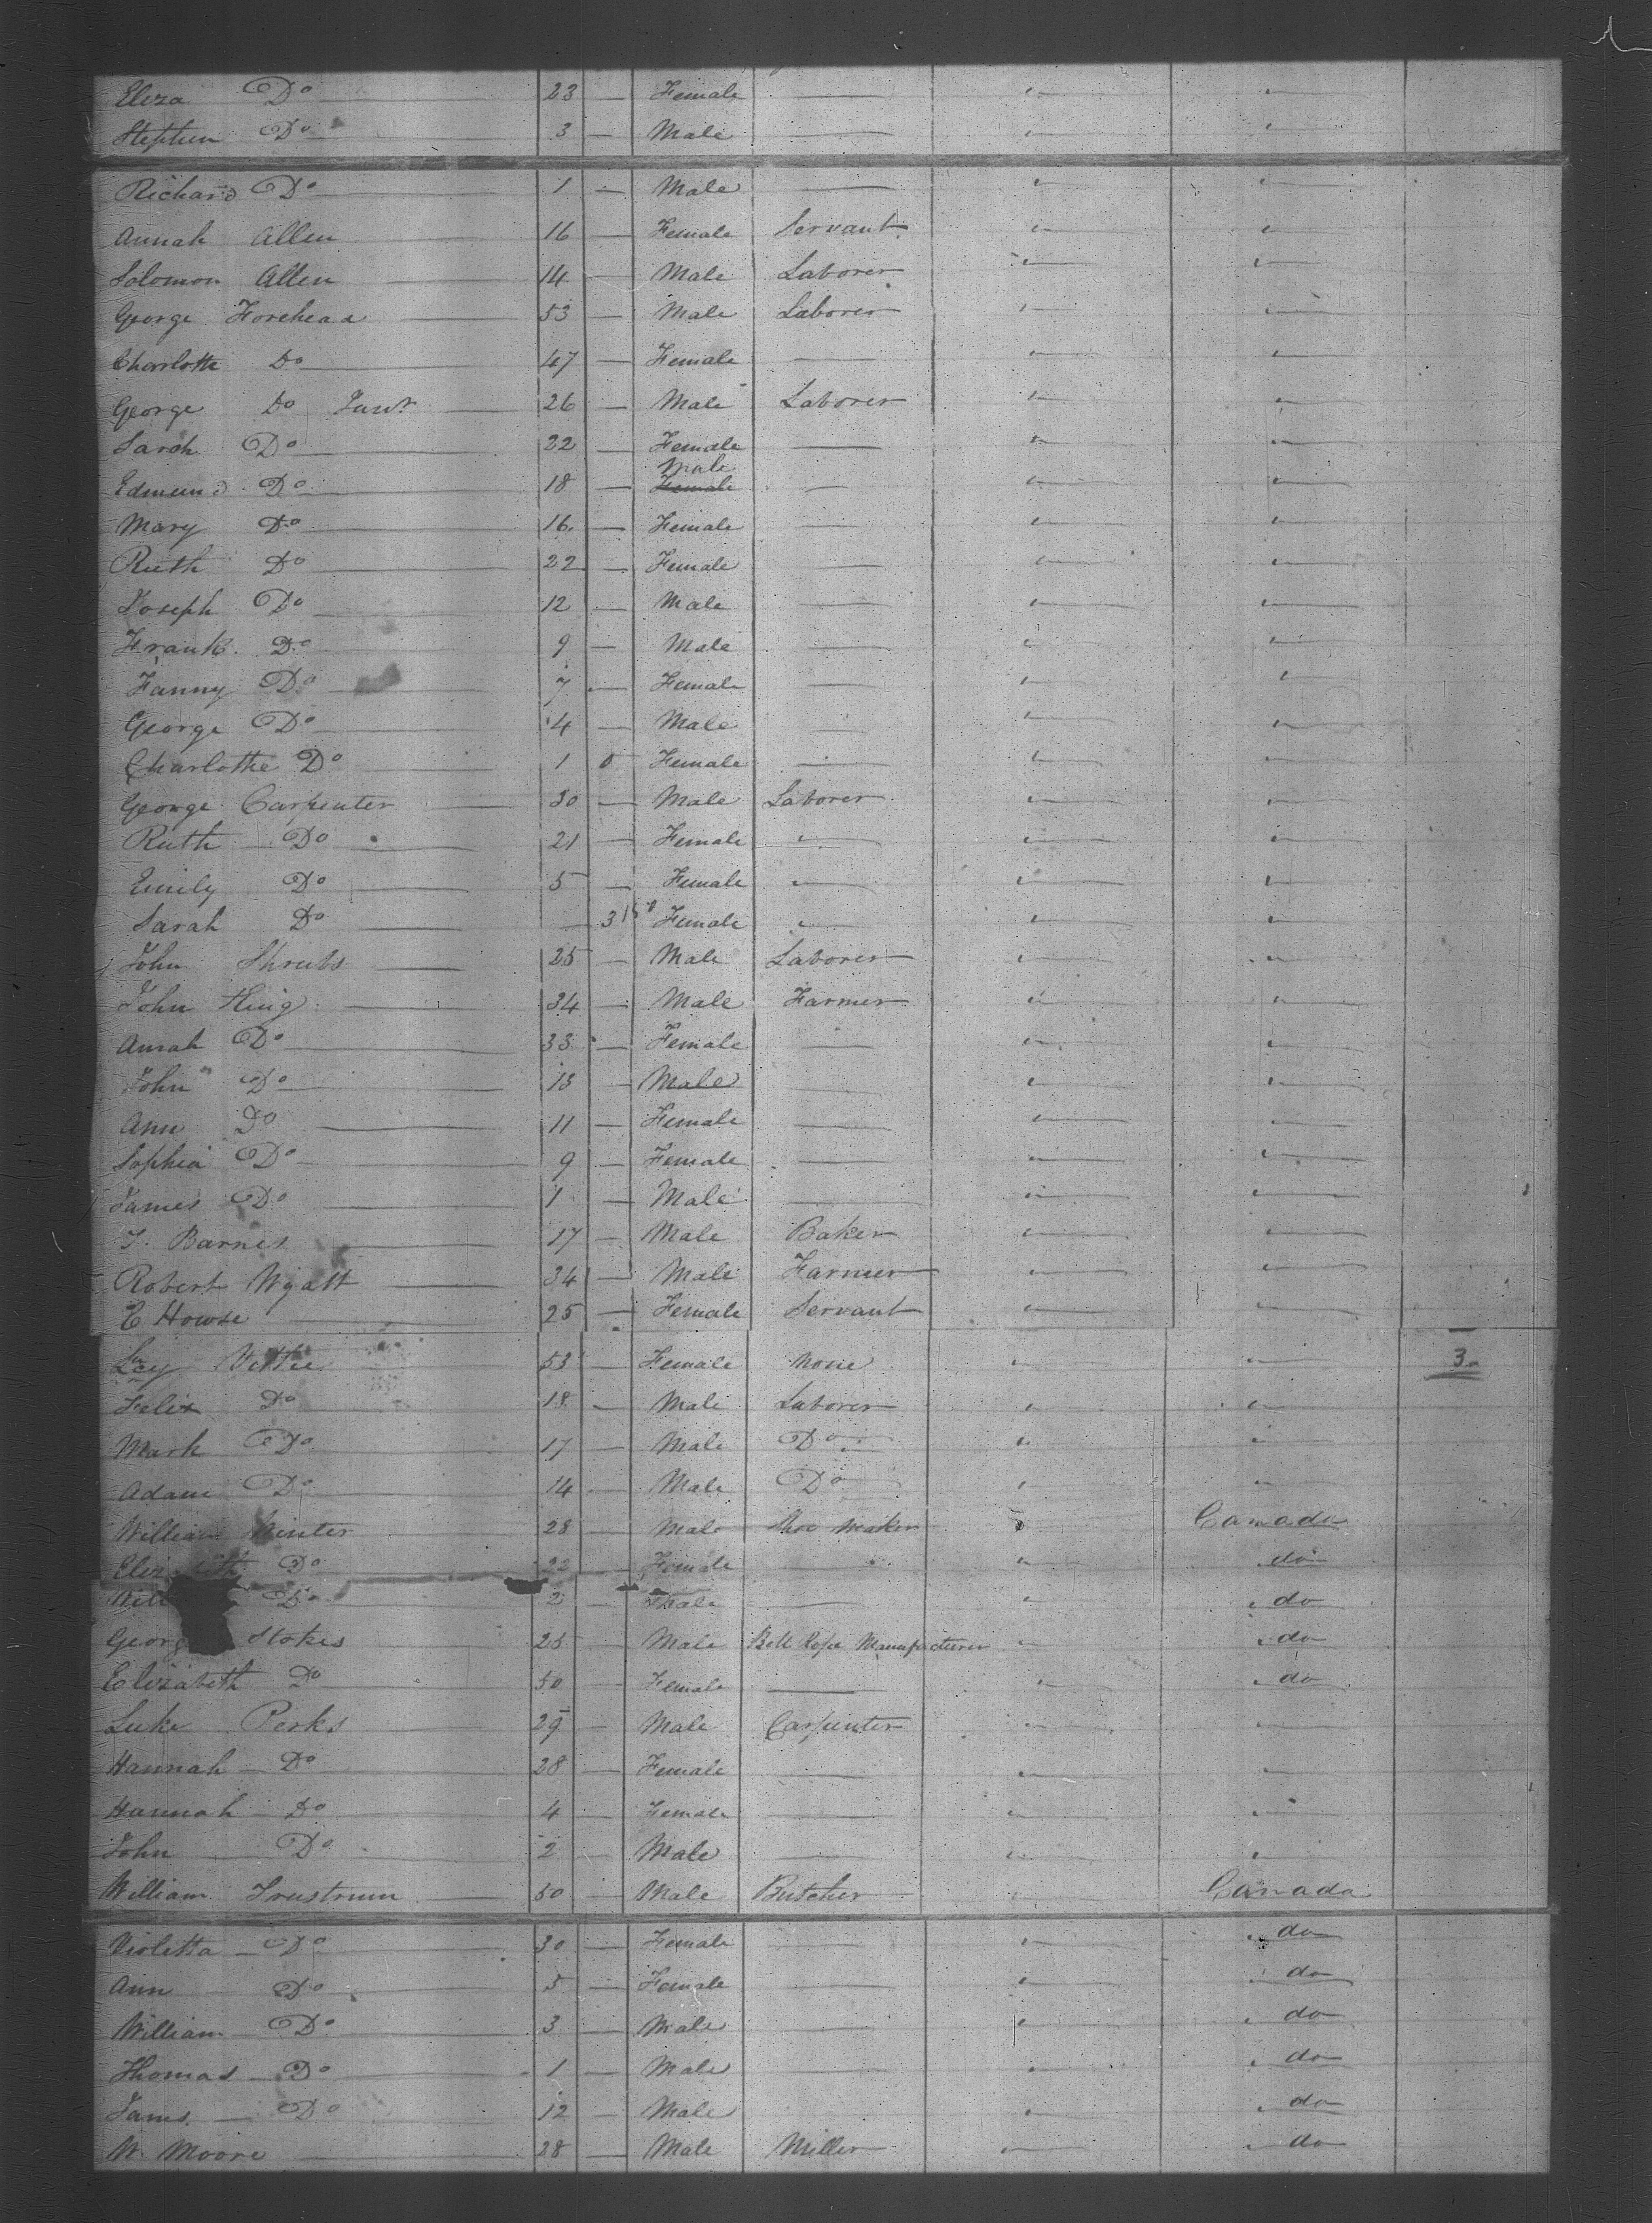 Eliza Do 23 — Female — " "
Stephen Do 3 — Male — " "
Richard Do 1 — Male — " "
Annah Allen 16 — Female Servant " "
Solomon Allen 14 — Male Laborer " "
George Forehead 53 — Male Laborer " "
Charlotte Do 47 — Female — " "
George Do Junr 26 — Male Laborer " "
Sarah Do 22 — Female — " "
Male
Edmund Do 18 — Female — " "
Mary Do 16 — Female — " "
Ruth Do 22 — Female — " "
Joseph Do 12 — Male — " "
Frank Do 9 — Male — " "
Fanny Do 7 — Female — " "
George Do 4 — Male — " "
Charlotte Do 1 0 Female — " "
George Carpenter 30 — Male Laborer " "
Ruth Do 21 — Female " " "
Emily Do 5 — Female " " "
Sarah Do 3 Female " " "
John Shrubs 25 — Male Laborer " "
John King 34 — Male Farmer " "
Annah Do 33 — Female — " "
John Do 13 — Male — " "
Ann Do 11 — Female — " "
Sophia Do 9 — Female — " "
James Do 1 — Male — " "
J. Barnes 17 — Male Baker " "
Robert Wyatt 34 — Male Farmer " "
E Howse 25 — Female Servant " "
Lucy 53 — Female None " " 3
Felix Do 18 — Male Laborer " "
Mark Do 17 — Male Do " "
Adam Do 14 — Male Do " "
William Minter 28 — Male Shoe maker " Canada
Elizabeth Do 22 — Female — " do
Will Do 2 — Male — " " do
George Stokes 25 — Male Bell Rope Manufacturer " " do
Elizabeth Do 50 — Female — " " do
Luke Perks 29 — Male Carpenter " "
Hannah Do 28 — Female — " "
Hannah Do 4 — Female — " "
John Do 2 — Male — " "
William Trustrum 50 — Male Butcher " Canada
Violetta Do 30 — Female — " " do
Ann Do 5 — Female — " " do
William Do 3 — Male — " " do
Thomas Do 1 — Male — " " do
James Do 12 — Male " " do
W. Moore 28 — Male Miller " " do